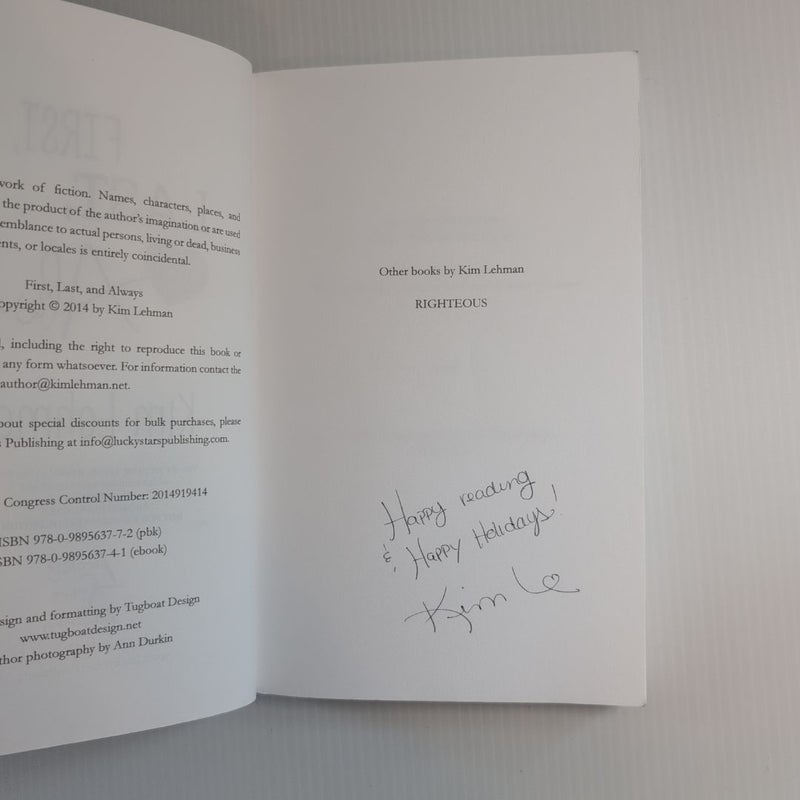 work of fiction. Names, characters, places, and
the product of the author's imagination or are used
emblance to actual persons, living or dead, business
nts, or locales is entirely coincidental.
First, Last, and Always
opyright © 2014 by Kim Lehman
, including the right to reproduce this book or
any form whatsoever. For information contact the
author@kimlehman.net.
out special discounts for bulk purchases, please
Publishing at info@luckystarspublishing.com.
Congress Control Number: 2014919414
ISBN 978-0-9895637-7-2 (pbk)
SBN 978-0-9895637-4-1 (ebook)
sign and formatting by Tugboat Design
www.tugboatdesign.net
thor photography by Ann Durkin
Other books by Kim Lehman
RIGHTEOUS
Happy reading
& Happy Holidays!
Kim